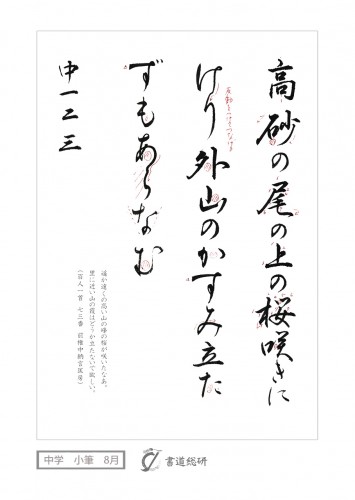 高砂の尾の上の桜咲きに
けり外山のかすみ立た
ずもあらなむ
中一二三
遥か遠くの高い山の峰の桜が咲いたなあ。
里に近い山の霞はどうか立たないで欲しい。
（百人一首 七三番 前権中納言匡房）
中学 小筆 8月
書道総研